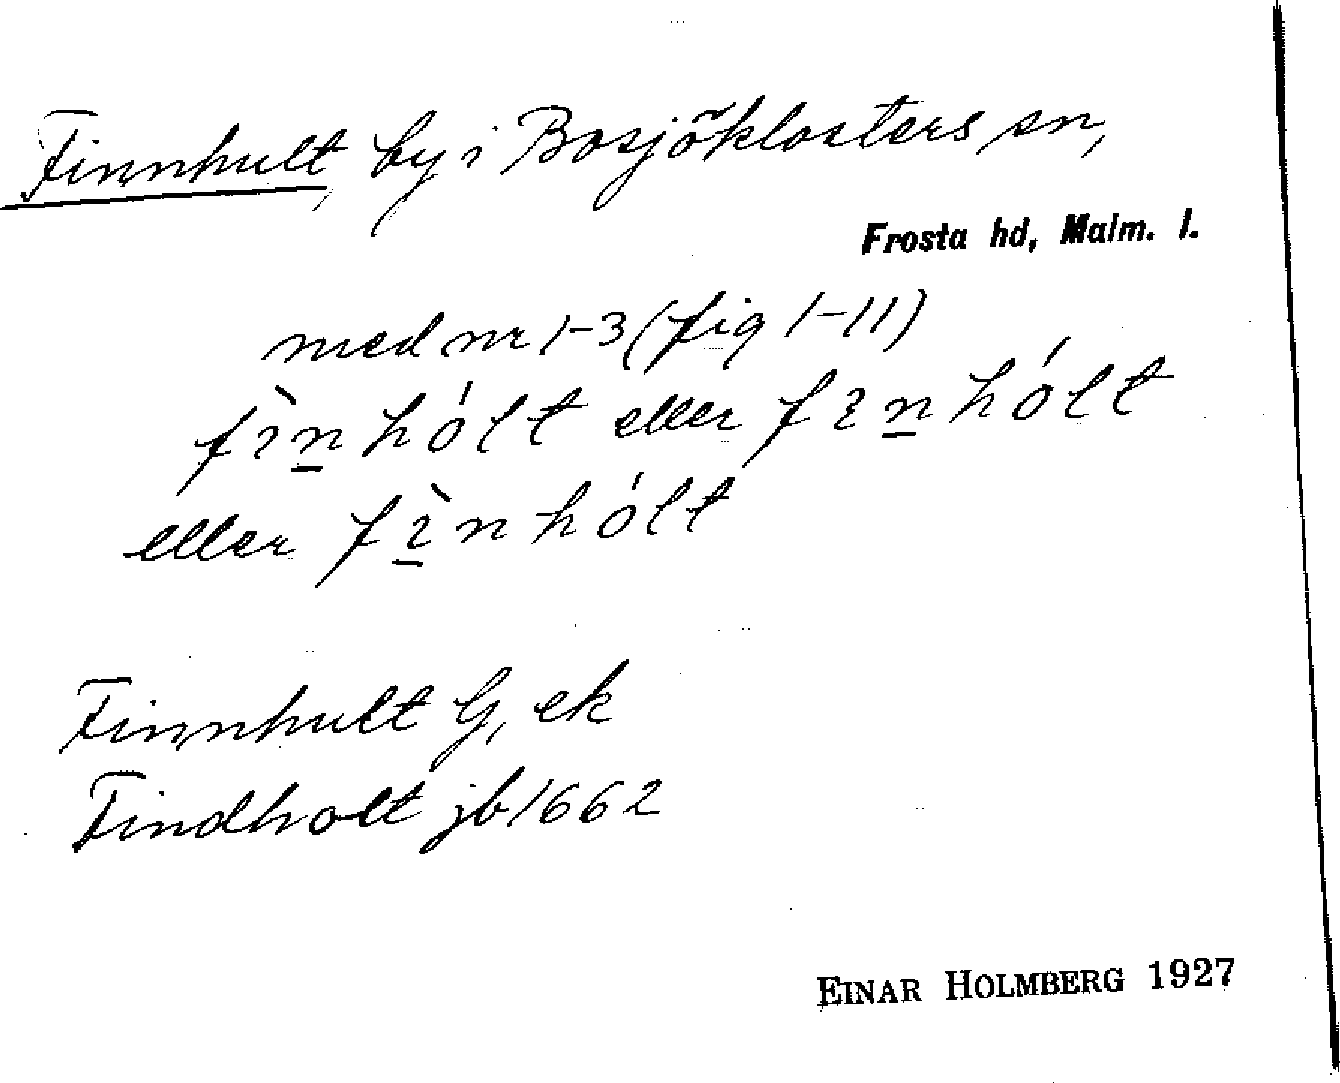 Finnhult, by i Bosjöklosters sn,
Frosta hd, Malm. l.
med nr 1-3 (fig 1-11)
fìn̲hólt eller fin̲hólt
eller fì̲nhólt
Finnhult G, ek
Findholt jb 1662
EINAR HOLMBERG 1927